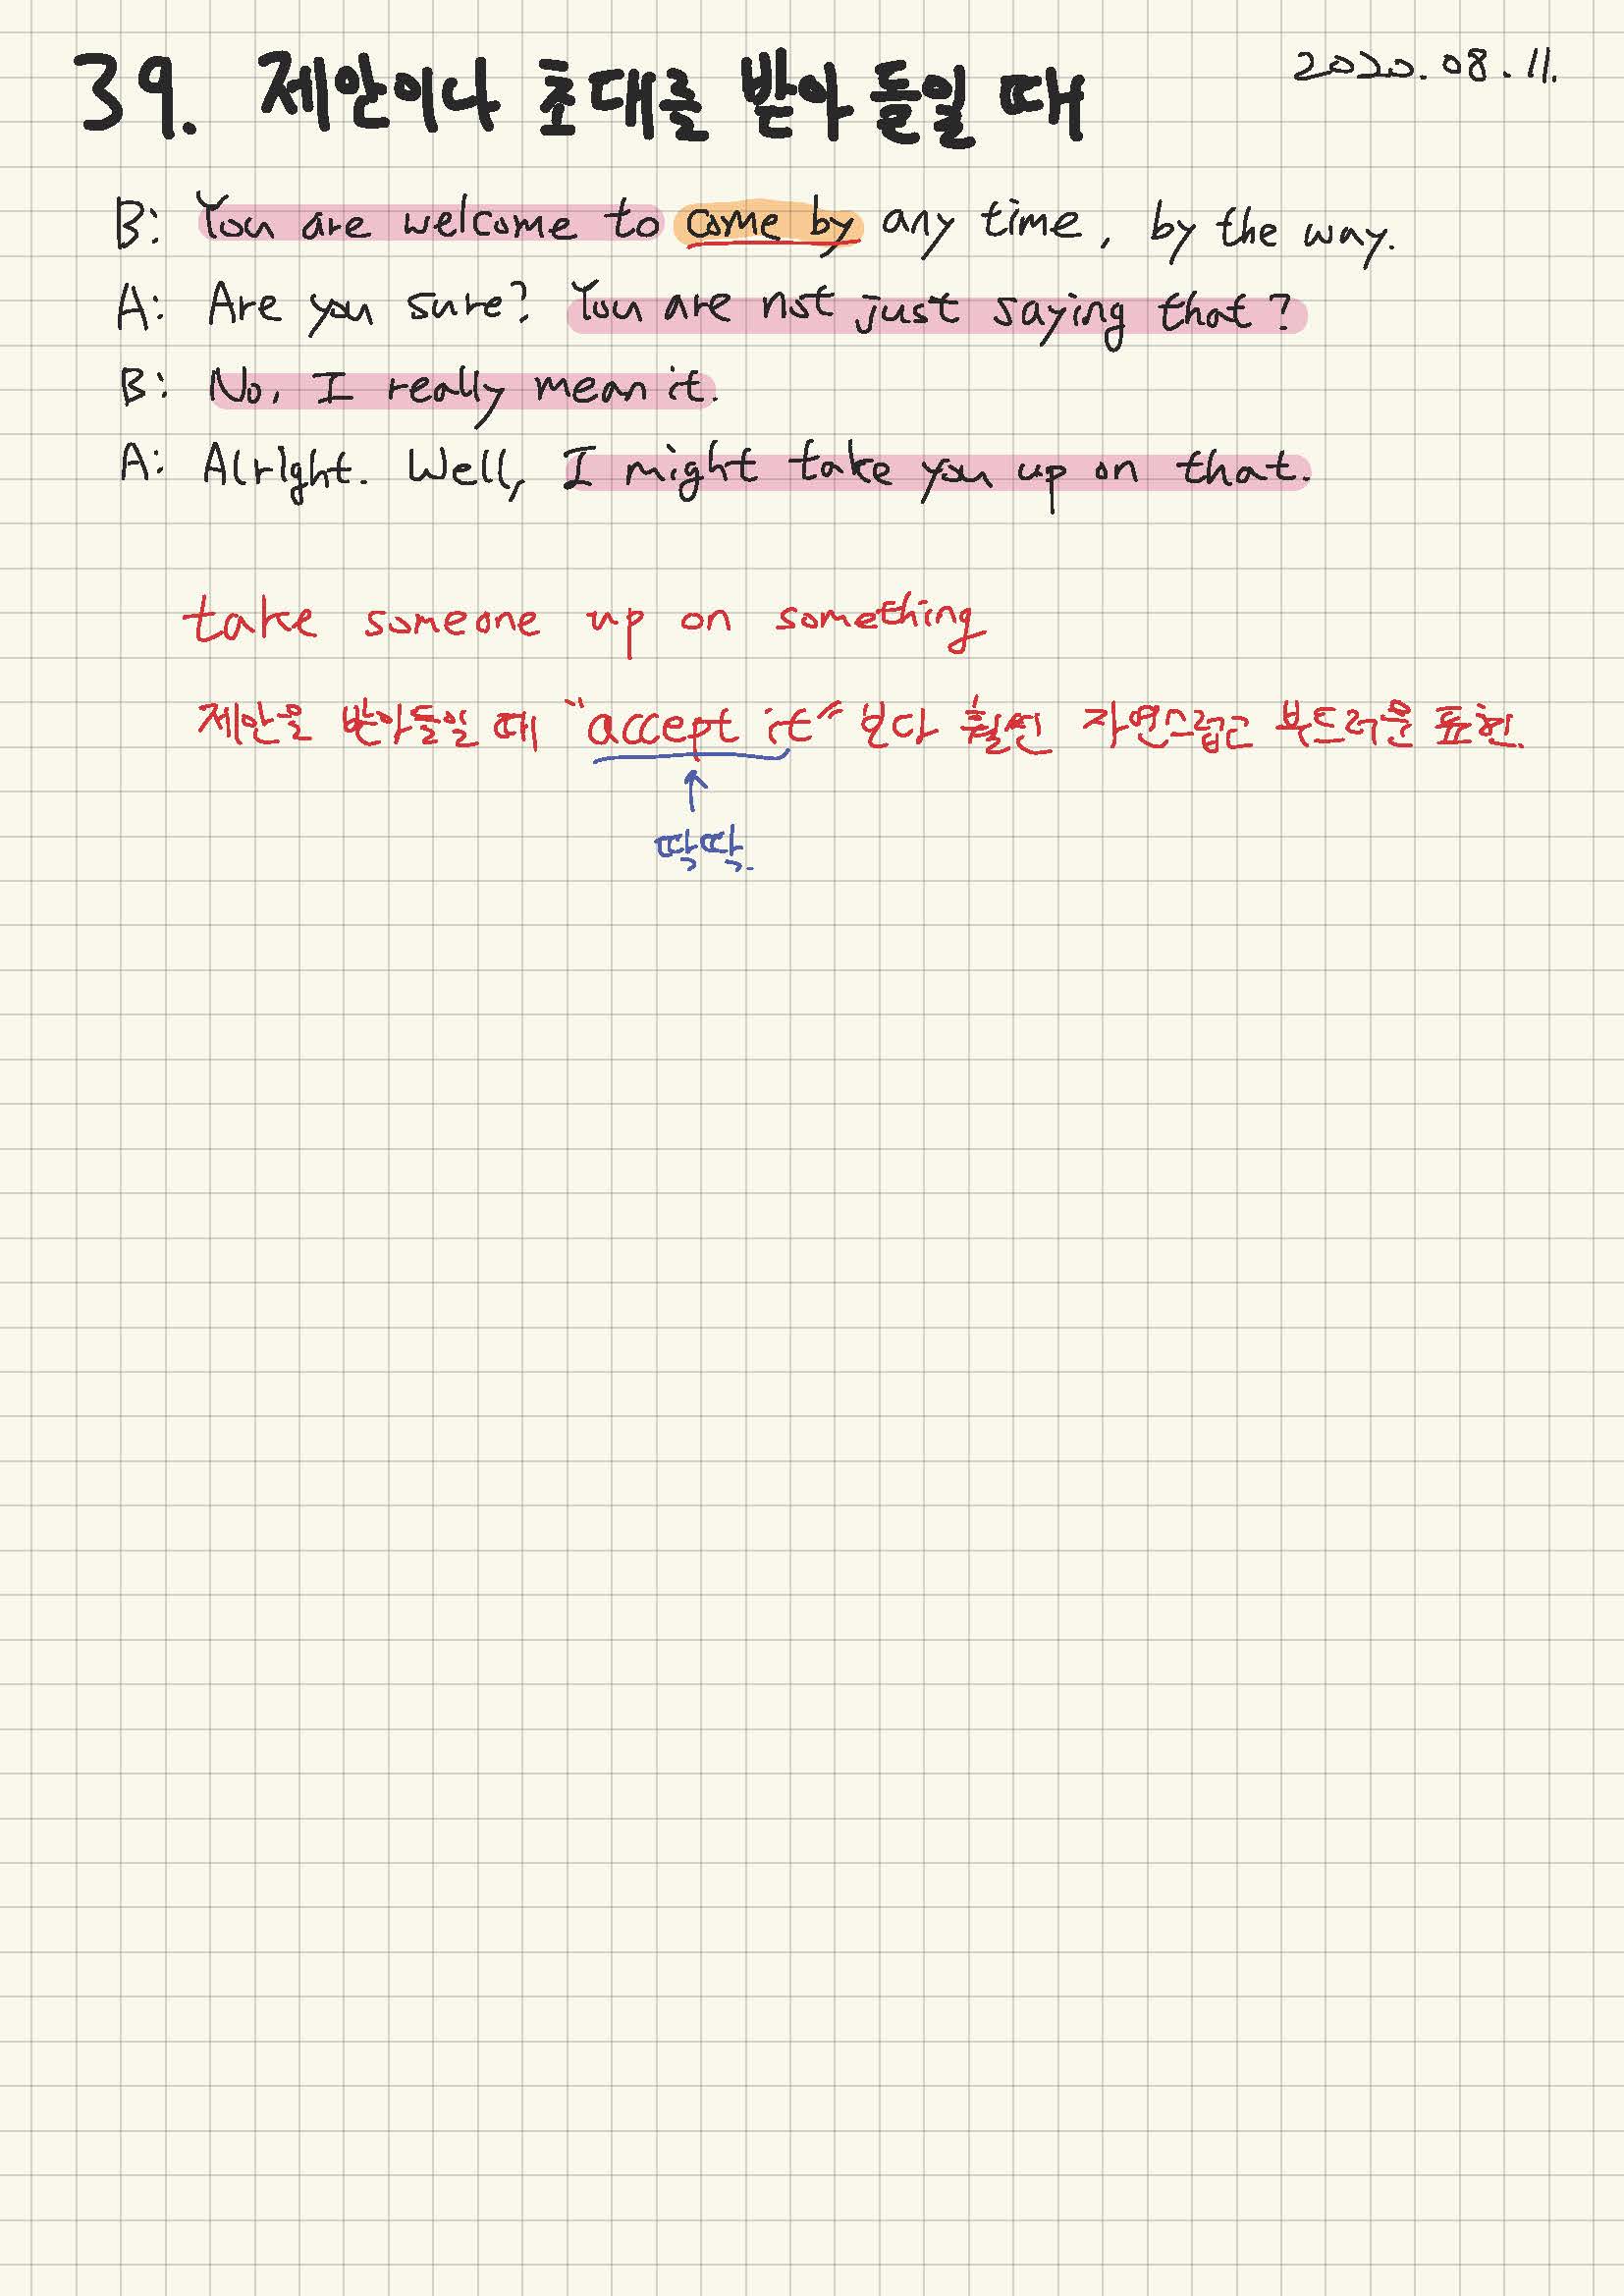 39. 제안이나 초대를 받아 들일 때
2020.08.11.
B: You are welcome to come by any time, by the way.
A: Are you sure? You are not just saying that?
B: No, I really mean it.
A: Alright. Well, I might take you up on that.
take someone up on something
제안을 받아들일 때 "accept it" 보다 훨씬 자연스럽고 부드러운 표현.
↑
딱딱.